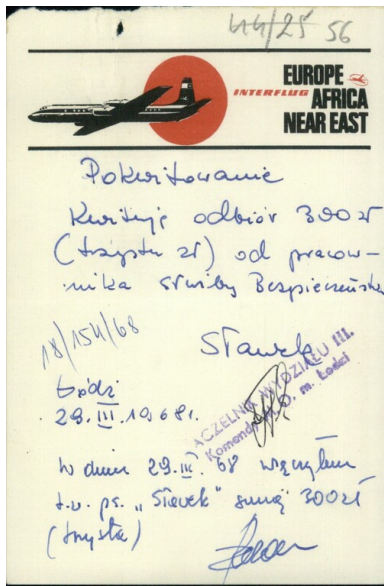 44/25 56
EUROPE
INTERFLUG AFRICA
NEAR EAST
Pokwitowanie
Kwituję odbiór 300 zł
(trzysta zł) od pracow-
nika Służby Bezpieczeństwa
18/154/68
Sławek
Łódź
29.III.1968r.
NACZELNIK WYDZIAŁU III.
Komendy M.O. m. Łodzi
W dniu 29.III.68 wręczyłem
t.w. ps. „Sławek" sumę 300 zł
(trzysta)